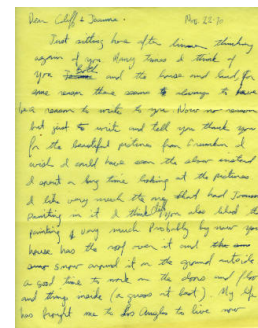 Dear Cliff & Joanne. Nov. 22-70
Just sitting here after dinner thinking
again of you. Many times I think of
you both and the house and land, for
some reason there seems to always to have
be a reason to write to you. Now no reason
but just to write and tell you thank you
for the beautiful pictures from
wish I could have seen the show instead
I spent a long time looking at the pictures
I like very much the one that had Joanne
painting in it I think you also liked the
painting very much. Probably by now your
house has the roof over it and
snow around it on the ground outside
a good time to work on the doors and floor
and things inside (a guess at best). My life
has brought me to Los Angeles to live now